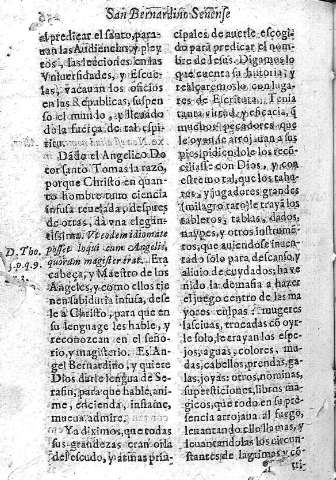 San Bernardino Senense
el predicar el santo, para-
uan las Audiencias, y pley
tos, las lecciones en las
Vniuersidades, y Escue
las, vacauan los oficios
en las Republicas, suspen
so el mundo, y lleuado
de la fuerça de tal espi
ritu.
Dada el Angelico Do
tor santo Tomas la razõ,
porque Christo en quan-
to hombre tuuo ciencia
infusa reuelada, despues
de otras, da vna elegan
tissima. Vt eodem idiomate
posset loqui cum Angelis,
quorum magister erat. Era
cabeça, y Maestro de los
Angeles, y como ellos tie
nen sabiduria infusa, dese
le a Christo, para que en
su lenguage les hable, y
reconozcan en el seño-
rio, y magisterio. Es An
gel Bernardino, y quiere
Dios darle lengua de Se-
rafin, para que hable, ani-
me, encienda, inflame,
mueua, admire.
Ya diximos, que todas
sus grandezas eran oila
des cudo, y armas pria-
D. Tho.
3. p. q. 9.
cipales de auerle escogi
do para predicar el nom-
bre de Iesus. Digamos lo
que cuenta su historia, y
realçaremoslo con luga-
res de Escritura. Tenia
tanta virtud, y eficacia, q̃
muchos pecadores que
le oyan se arrojauan a sus
pies, pidiendole los reco
ciliasse con Dios, y con
estremo tal, que los tahu-
res, y jugadores grandes
(milagro raro) le trayã los
tableros, tablas, dados,
naypes, y otros instrumẽ-
tos, que auiendose inuen-
tado solo para descanso, y
aliuio de cuydados; ha ve
nido la demasia a hazer
el juego centro de las ma
yores culpas: mugeres
lasciuas, trocadas cõ oyr-
le solo, le trayan los espe-
jos, aguas, colores, mu-
das, cabellos, prendas, ga-
las, joyas: otros, nominas,
supersticiones, libros ma
gicos, que todo en su pre
sencia arrojaua al fuego,
leuantando ellos llamas, y
leuantandolas los circun-
stantes de lagrimas, y cõ
tri-